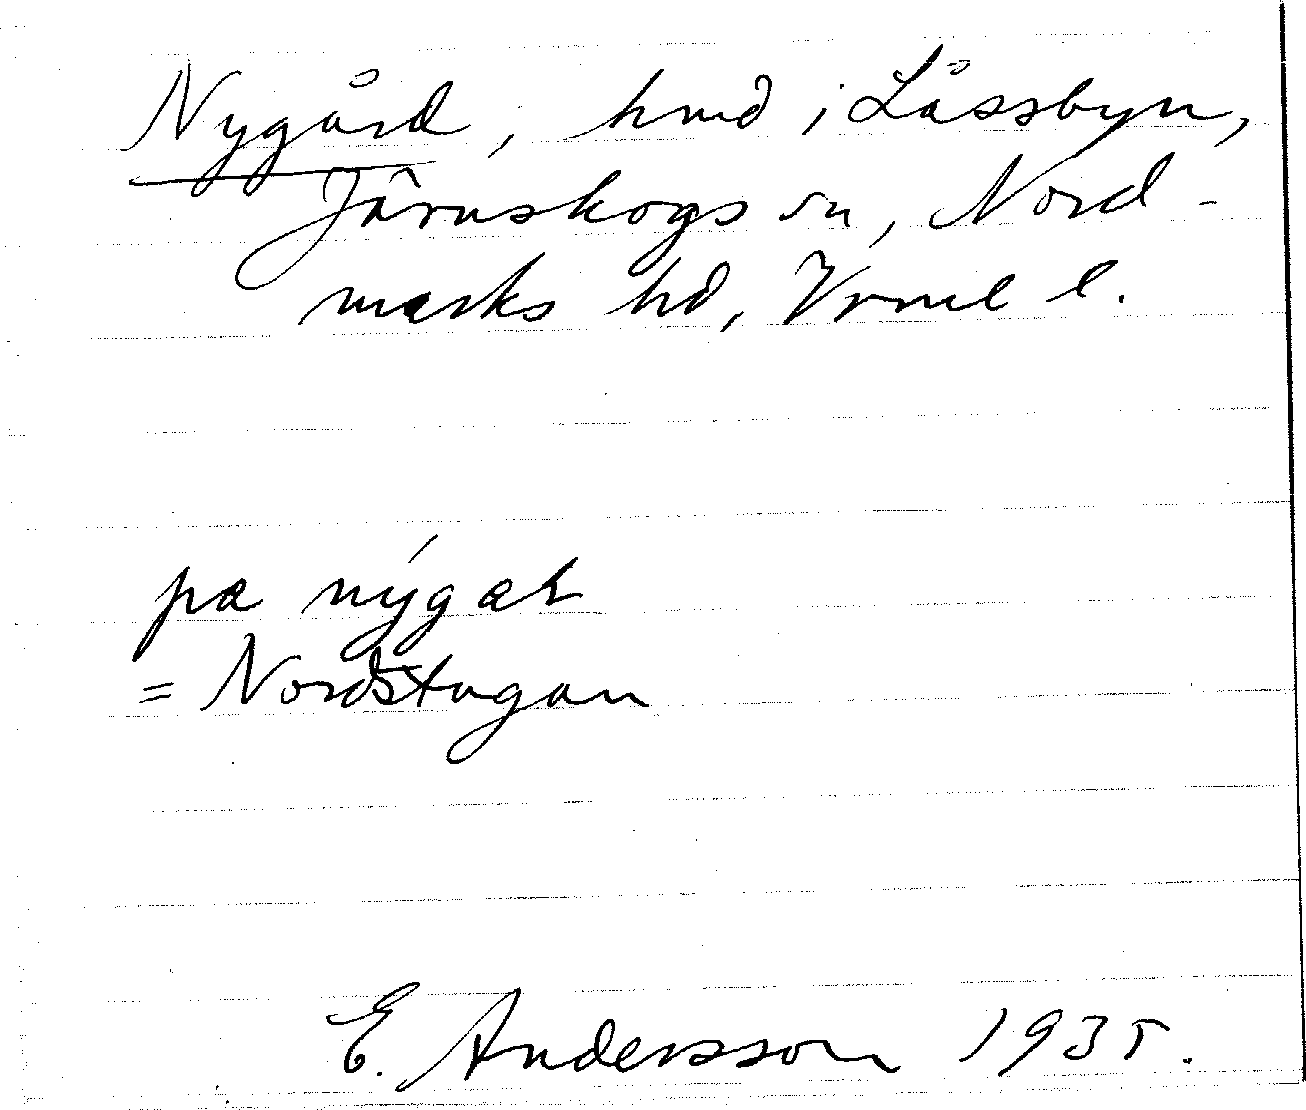 Nygård, hmd i Låssbyn,
Järnskogs sn, Nord-
marks hd, Vrml l.
pæ nýgæt
= Nordstugan
E. Andersson 1935.